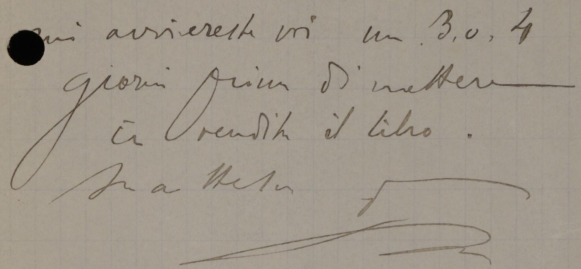 mi avviereste voi un 3. o. 4
giorni prima di mettere
in vendita il libro.
In attesa